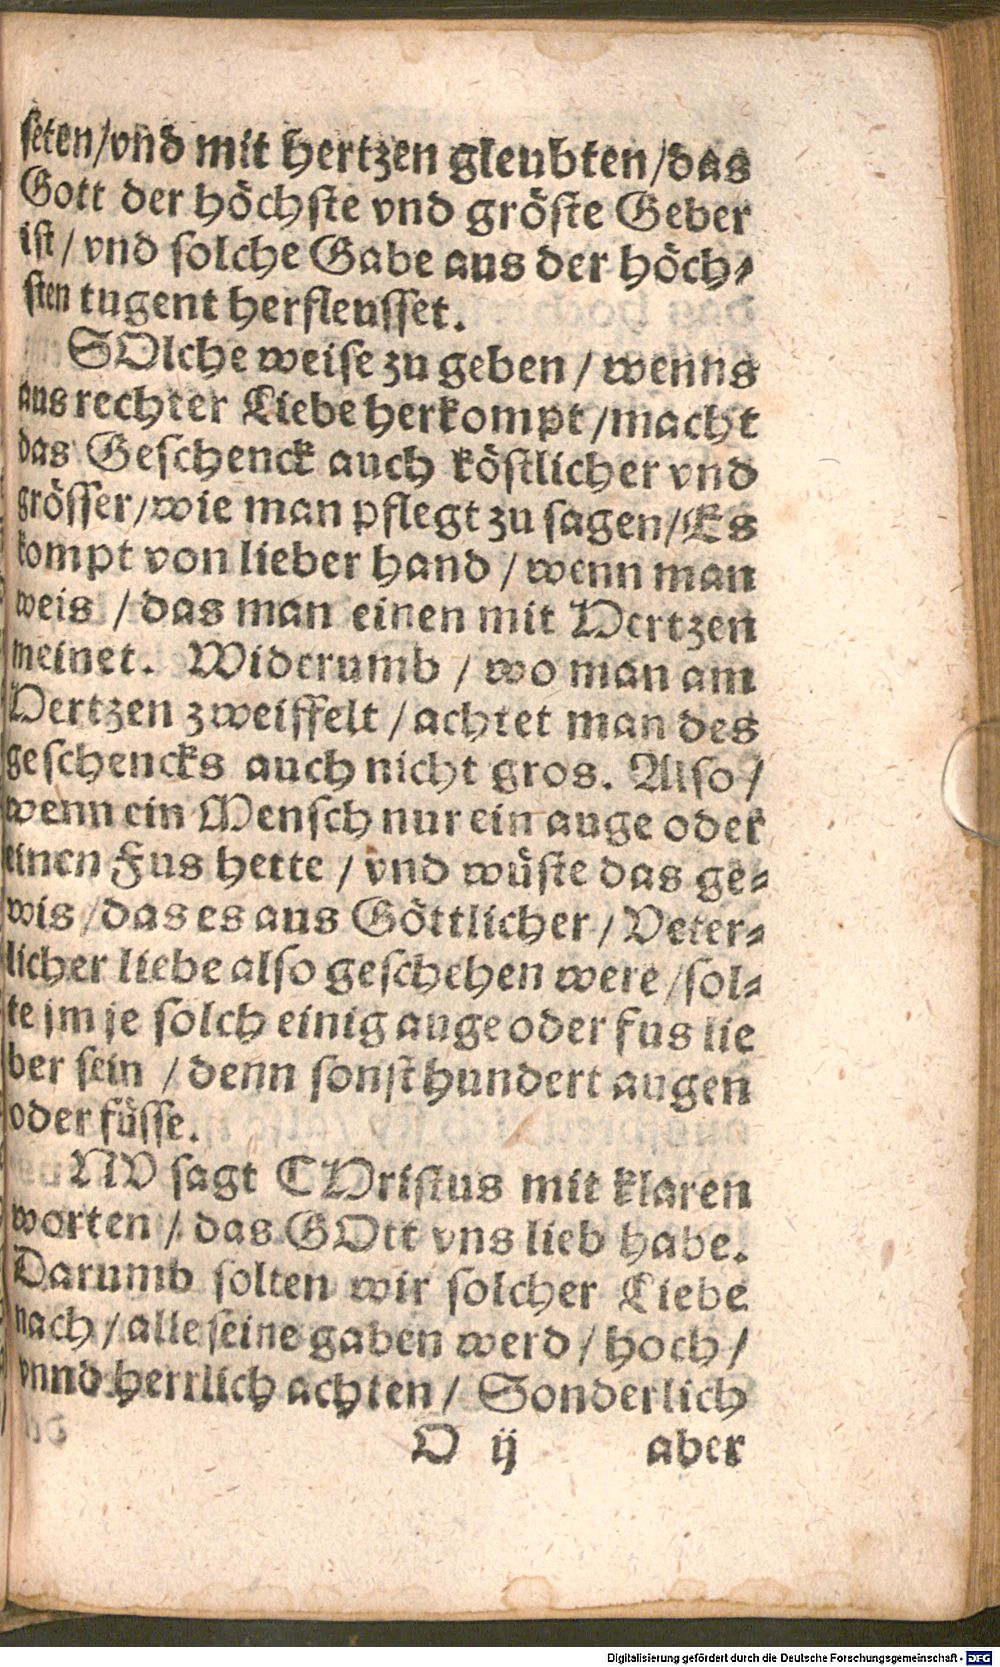 seten/vnd mit hertzen gleubten/das
Gott der höchste vnd gröste Geber
ist/vnd solche Gabe aus der höch-
sten tugent herfleusset.
SOlche weise zu geben/wenns
aus rechter Liebe herkompt/macht
das Geschenck auch köstlicher vnd
grösser/wie man pflegt zu sagen/Es
kompt von lieber hand/wenn man
weis/das man einen mit Hertzen
meinet. Widerumb/wo man am
Hertzen zweiffelt/achtet man des
geschencks auch nicht gros. Also/
wenn ein Mensch nur ein auge oder
einen Fus hette/vnd wüste das ge-
wis/das es aus Göttlicher/Veter-
licher liebe also geschehen were/sol-
te jm je solch einig auge oder fus lie
ber sein/denn sonst hundert augen
oder füsse.
NV sagt CHristus mit klaren
worten/das GOtt vns lieb habe.
Darumb solten wir solcher Liebe
nach/alle seine gaben werd/hoch/
vnnd herrlich achten/Sonderlich
D ij aber
Digitalisierung gefördert durch die Deutsche Forschungsgemeinschaft - DFG